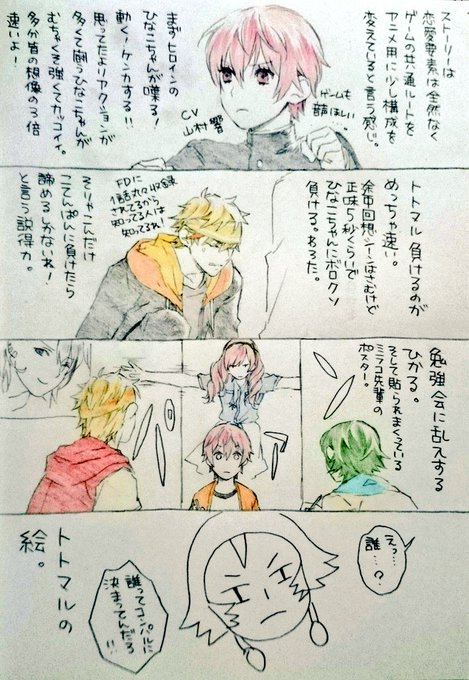 ストーリーは
恋愛要素は全然なく
ゲームの共通ルートを
アニメ用に少し構成を
変えていると言う感じ。
ゲームも
音声ほしい…
CV
山村響
まずヒロインの
ひなこちゃんが喋る!
動く!ケンカする!!
思ってたよりリアクションが
多くて闘うひなこちゃんが
むちゃくちゃ強くてカッコイイ。
多分皆の想像の3倍
速いよ!
トトマル負けるのが
めっちゃ速い。
途中回想シーンはさむけど
正味5秒くらいで
ひなこちゃんにボロクソ
負ける。わろた。
FDに
1話丸々収録
されてるから
知ってる人は
知ってるね!
そりゃこんだけ
こてんぱんに負けたら
諦めるしかないね!
と言う説得力。
勉強会に乱入する
ひかる。
そして貼られまくっている
ミラコ先輩の
ポスター。
えっ…
誰…?
誰ってコンパルに
決まってんだろ!!
トトマルの
絵。